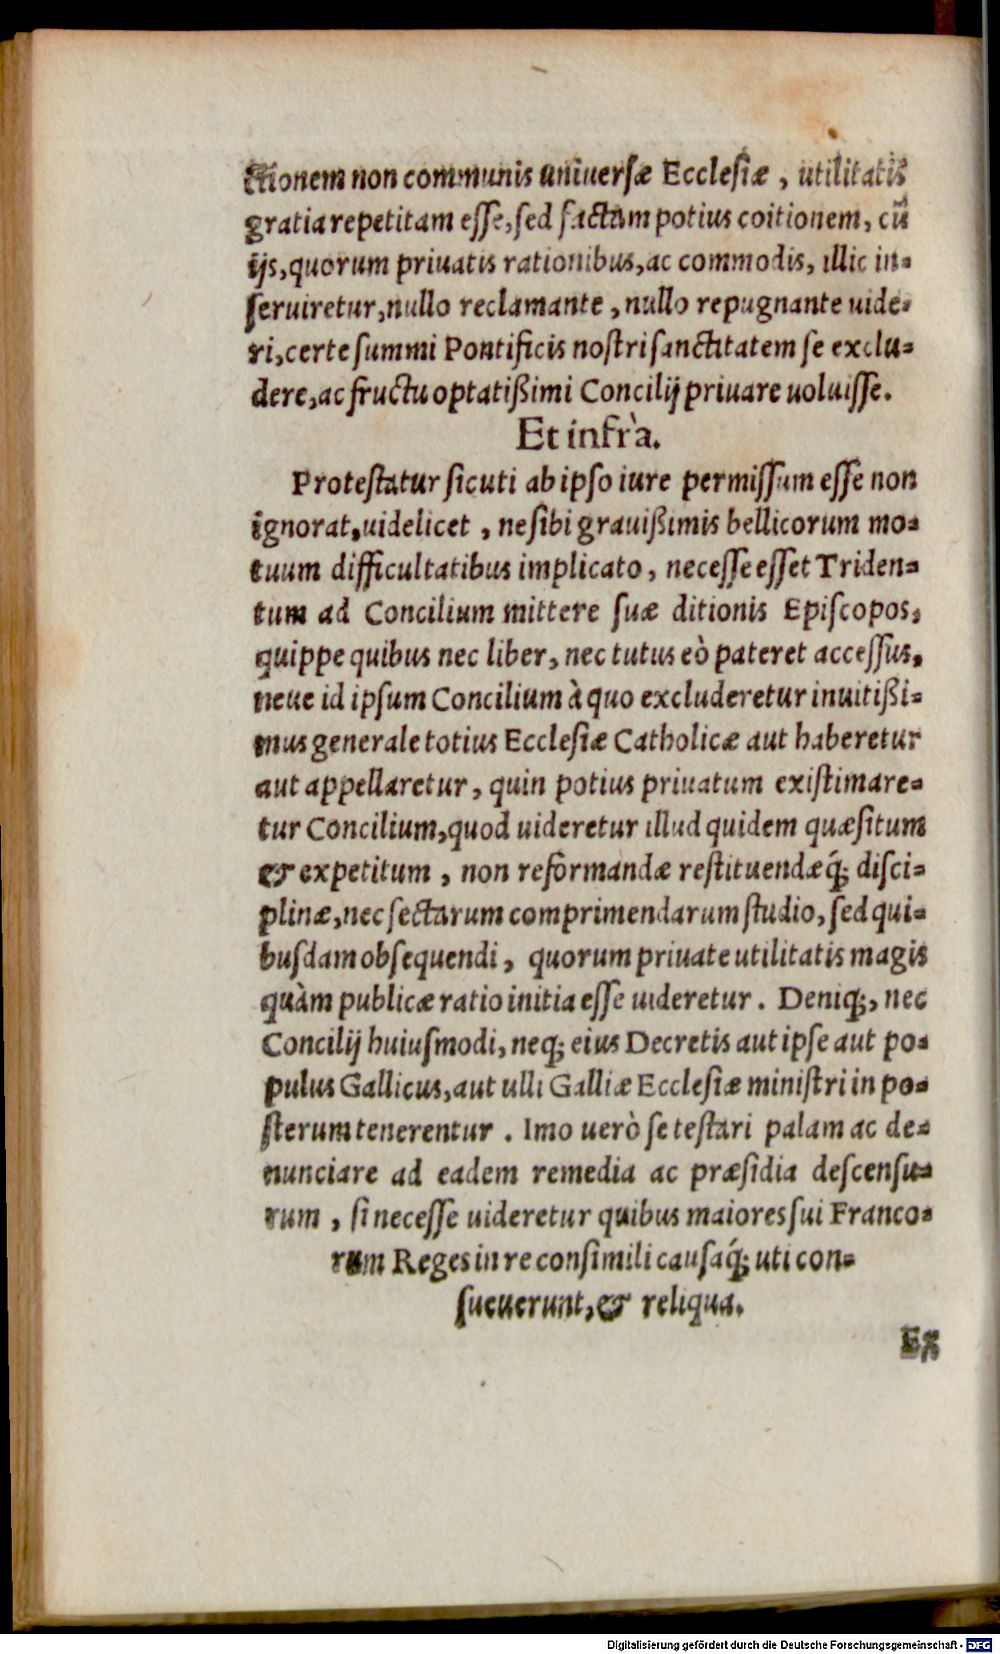 ctionem non communis uniuersæ Ecclesiæ, utilitatis
gratia repetitam esse, sed factam potius coitionem, cū
ijs, quorum priuatis rationibus, ac commodis, illic in-
seruiretur, nullo reclamante, nullo repugnante uide-
ri, certe summi Pontificis nostri sanctitatem se exclu-
dere, ac fructu optatißimi Concilij priuare uoluisse.
Et infrà.
Protestatur sicuti ab ipso iure permissum esse non
ignorat, uidelicet, ne sibi grauißimis bellicorum mo-
tuum difficultatibus implicato, necesse esset Triden-
tum ad Concilium mittere suæ ditionis Episcopos,
quippe quibus nec liber, nec tutus eò pateret accessus,
neue id ipsum Concilium à quo excluderetur inuitißi-
mus generale totius Ecclesiæ Catholicæ aut haberetur
aut appellaretur, quin potius priuatum existimare-
tur Concilium, quod uideretur illud quidem quæsitum
& expetitum, non reformandæ restituendæq́; disci-
plinæ, nec sectarum comprimendarum studio, sed qui-
busdam obsequendi, quorum priuate utilitatis magis
quàm publicæ ratio initia esse uideretur. Deniq;, nec
Concilij huiusmodi, neq; eius Decretis aut ipse aut po-
pulus Gallicus, aut ulli Galliæ Ecclesiæ ministri in po-
sterum tenerentur. Imo uerò se testari palam ac de-
nunciare ad eadem remedia ac præsidia descensu-
rum, si necesse uideretur quibus maiores sui Franco-
rum Reges in re consimili causaq́; uti con-
sueuerunt, & reliqua.
Ex
Digitalisierung gefördert durch die Deutsche Forschungsgemeinschaft - DFG